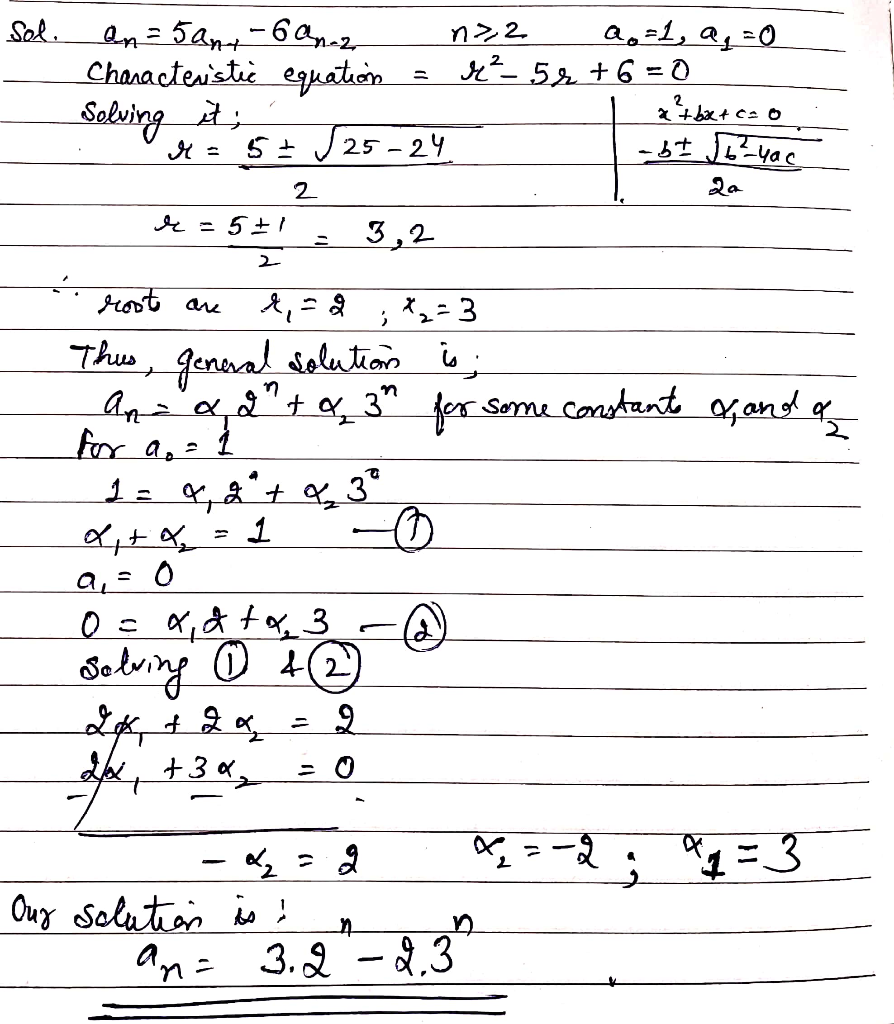 Sol. aₙ = 5aₙ₋₁ - 6aₙ₋₂ n ≥ 2 a₀ = 1, a₁ = 0
Characteristic equation = r² - 5r + 6 = 0
Solving it ;
x² + bx + c = 0
r = (5 ± √(25 - 24)) / 2
(-b ± √(b² - 4ac)) / 2a
r = (5 ± 1) / 2 = 3, 2
∴ root are r₁ = 2 ; r₂ = 3
Thus, general solution is ;
aₙ = α₁ 2ⁿ + α₂ 3ⁿ for some constant α₁ and α₂
for a₀ = 1
1 = α₁ 2⁰ + α₂ 3⁰
α₁ + α₂ = 1 — ①
a₁ = 0
0 = α₁ 2 + α₂ 3 — ②
Solving ① & ②
2α₁ + 2α₂ = 2
2α₁ + 3α₂ = 0
- - -
- α₂ = 2 α₂ = -2 ; α₁ = 3
Our solution is :
aₙ = 3.2ⁿ - 2.3ⁿ